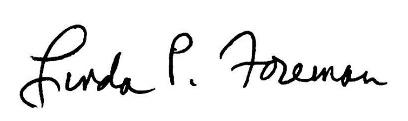 Linda P. Foreman